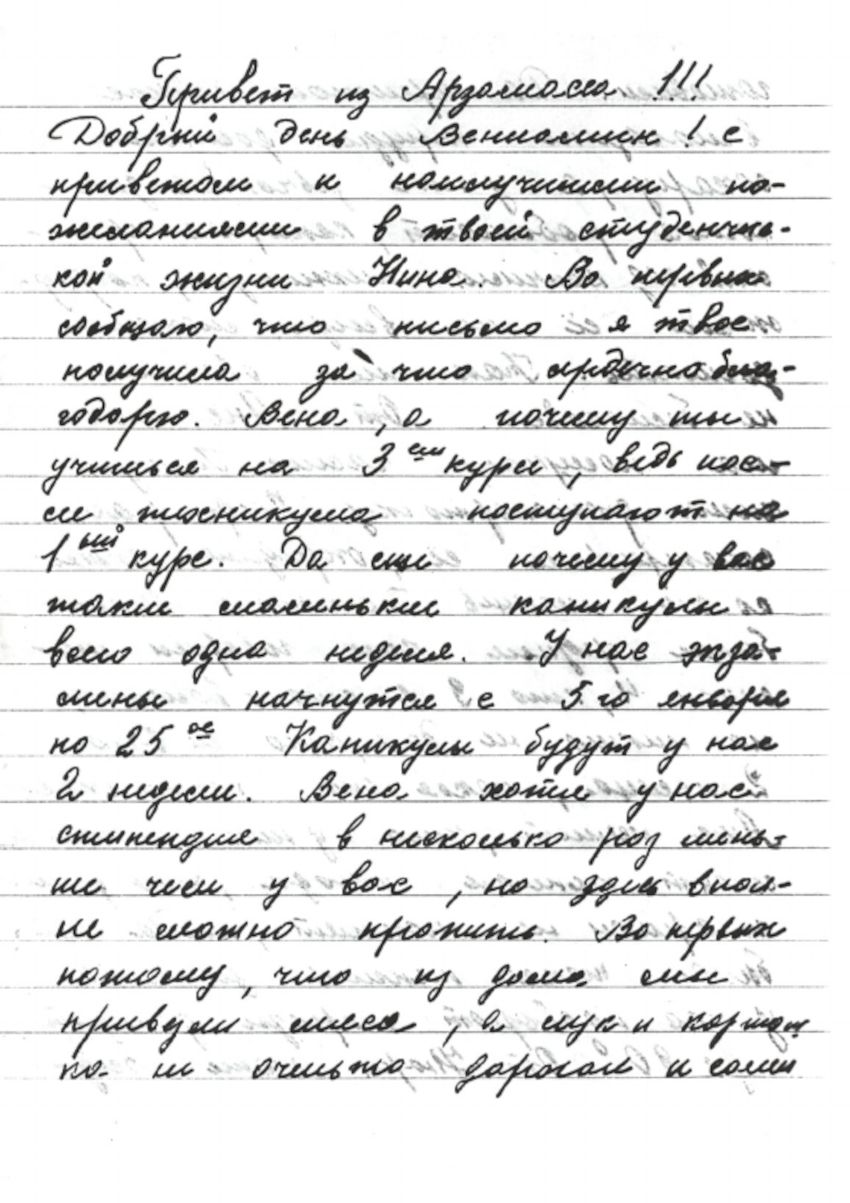 Привет из Арзамаса !!!
Добрый день Вениамин! с
приветом и наилучшими по-
желаниями в твоей студенчес-
кой жизни Нина. Во первых
сообщаю, что письмо я твое
получила за что сердечно бла-
годарю. Вена, а почему ты
учишься на 3ем курсе, ведь пос-
ле техникума поступают на
1ый курс. Да еще почему у вас
такие маленькие каникулы
всего одна неделя. У нас экза-
мены начнутся с 5го января
по 25ое Каникулы будут у нас
2 недели. Вена хотя у нас
стипендия в несколько раз мень-
ше чем у вас, но здесь впол-
не можно прожить. Во первых
потому, что из дома мы
привезли мясо, а лук и картош
ка не оченьто дорогая и сами